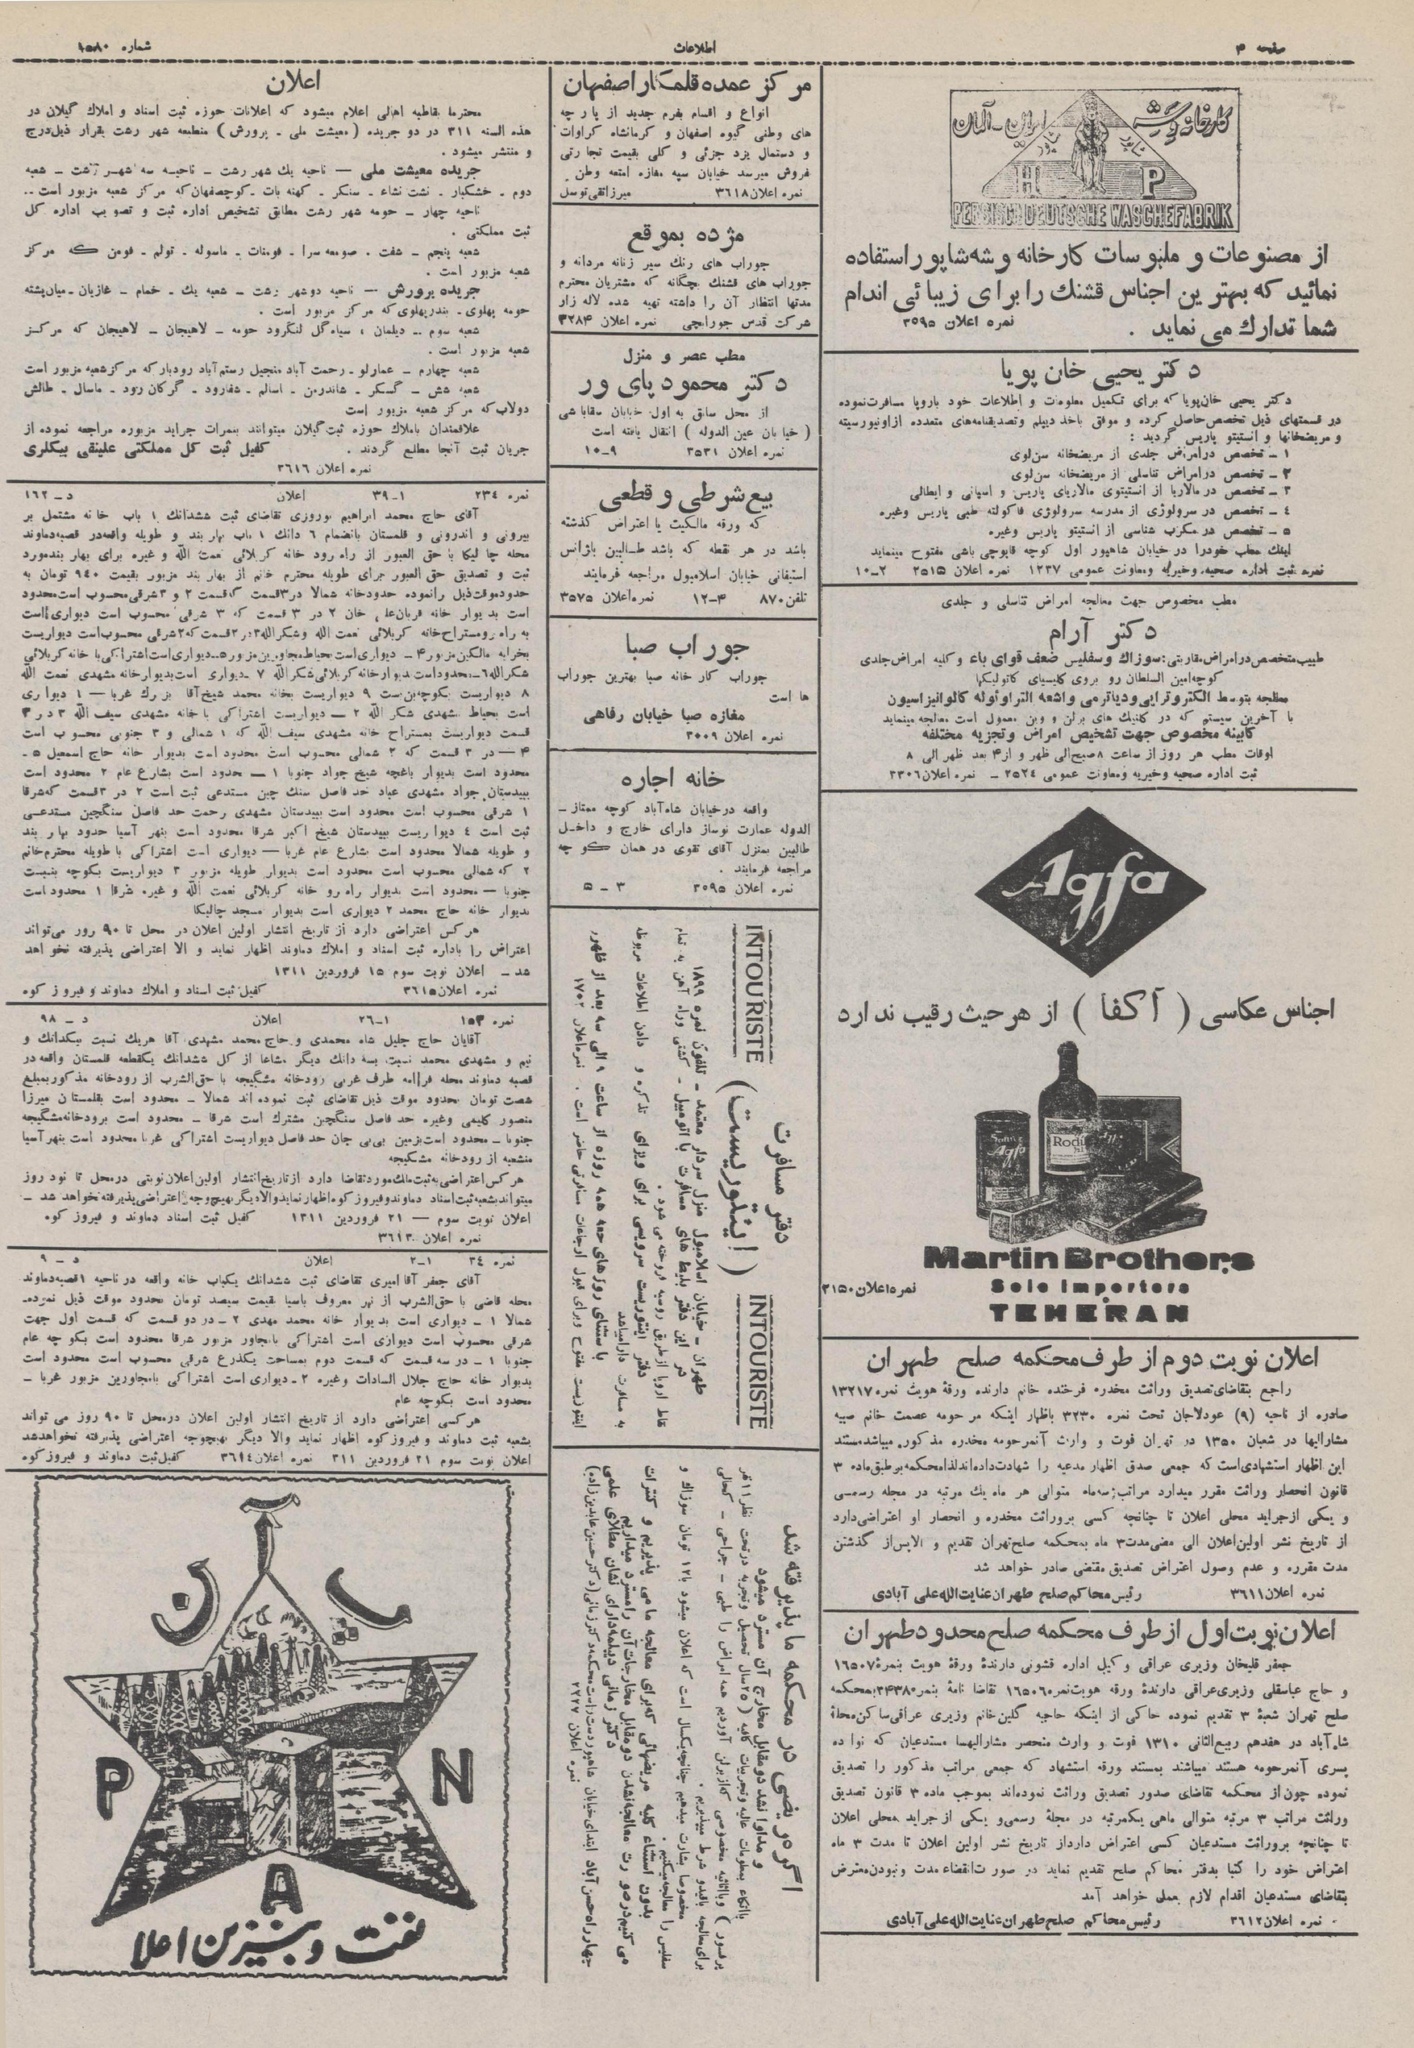 صفحه ۴
اطلاعات
شماره ۱۵۸۰
کارخانه وشه ایران ـ آلمان
شاپور شاپور
H P
PERSISCH DEUTSCHE WASCHEFABRIK
از مصنوعات و ملبوسات کارخانه وشه شاپور استفاده
نمائید که بهترین اجناس قشنك را برای زیبائی اندام
شما تدارك می نماید .
نمره اعلان ۳۵۹۵
دکتر یحیی خان پویا
دکتر یحیی خان پویا که برای تکمیل معلومات و اطلاعات خود باروپا مسافرت نموده
در قسمتهای ذیل تخصص حاصل کرده و موفق باخذ دیپلم و تصدیقنامه‌های متعدده از اونیورسیته
و مریضخانها و انستیتو پاریس گردید :
۱ ـ تخصص در امراض جلدی از مریضخانه سن‌لوی
۲ ـ تخصص در امراض تناسلی از مریضخانه سن‌لوی
۳ ـ تخصص در مالاریا از انستیتوی مالاریای پاریس و اسپانی و ایطالی
۴ ـ تخصص در سرولوژی از مدرسه سرولوژی فاکولته طبی پاریس وغیره
۵ ـ تخصص در مکرب شناسی از انستیتو پاریس وغیره
اینك مطب خودرا در خیابان شاهپور اول کوچه قاپوچی باشی مفتوح مینماید
نمره ثبت اداره صحیه وخیریه ومعاونت عمومی ۱۲۳۷ نمره اعلان ۳۵۱۵ ۲ـ۱۰
مطب مخصوص جهت معالجه امراض تناسلی و جلدی
دکتر آرام
طبیب متخصص در امراض مقاربتی: سوزاك وسفلیس ضعف قوای باء وکلیه امراض جلدی
کوچه امین السلطان رو بروی کلیسیای کاتولیکها
معالجه بتوسط الکتروتراپی ودیاترمی واشعه التراوئوله کالوانیزاسیون
با آخرین سیستم که در کلنیك های برلن و وین معمول است معالجه مینماید
کابینه مخصوص جهت تشخیص امراض وتجزیه مختلفه
اوقات مطب هر روز از ساعت ۸ صبح الی ظهر و از ۴ بعد ظهر الی ۸
ثبت اداره صحیه وخیریه ومعاونت عمومی ۲۵۲۴ ـ نمره اعلان ۳۳۰۶
Agfa
اجناس عکاسی ( آکفا ) از هر حیث رقیب ندارد
Agfa
Rodinal
Martin Brothers
Sole Importers
TEHERAN
نمره اعلان ۳۱۵۰
اعلان نوبت دوم از طرف محکمه صلح طهران
راجع بتقاضای تصدیق وراثت مخدره فرخنده خانم دارنده ورقهٔ هویت نمره ۱۳۲۱۷
صادره از ناحیه (۹) عودلاجان تحت نمره ۳۲۳۰ باظهار اینکه مرحومه عصمت خانم صبیه
مشارالیها در شعبان ۱۳۵۰ در تهران فوت و وارث آنمرحومه مخدره مذکور میباشد مستند
این اظهار استشهادی است که جمعی صدق اظهار مدعیه را شهادت داده‌اند لذا محکمه بر طبق ماده ۳
قانون انحصار وراثت مقرر میدارد مراتب سه ماه متوالی هر ماه یك مرتبه در مجله رسمی
و یکی از جراید محلی اعلان تا چنانچه کسی بر وراثت مخدره و انحصار او اعتراضی دارد
از تاریخ نشر اولین اعلان الی مضی مدت ۳ ماه بمحکمه صلح تهران تقدیم و الا پس از گذشتن
مدت مقرره و عدم وصول اعتراض تصدیق مقتضی صادر خواهد شد
نمره اعلان ۳۶۱۱ رئیس محاکم صلح طهران عنایت الله علی آبادی
اعلان نوبت اول از طرف محکمه صلح محدود طهران
جعفر قلیخان وزیری عراقی وکیل اداره قشونی دارندهٔ ورقهٔ هویت بنمرهٔ ۱۶۵۰۷
و حاج عباسقلی وزیری عراقی دارندهٔ ورقه هویت نمره ۱۶۵۰۶ تقاضا نامهٔ بنمره ۳۴۳۸ بمحکمه
صلح تهران شعبهٔ ۳ تقدیم نموده حاکی از اینکه حاجیه گلین خانم وزیری عراقی ساکن محلهٔ
شاه آباد در هفدهم ربیع الثانی ۱۳۱۰ فوت و وارث منحصر مشارالیهما مستدعیان که نواده
پسری آنمرحومه هستند میباشند بمستند ورقه استشهاد که جمعی مراتب مذکور را تصدیق
نموده چون از محکمه تقاضای صدور تصدیق وراثت نموده‌اند بموجب ماده ۳ قانون تصدیق
وراثت مراتب ۳ مرتبه متوالی ماهی یکمرتبه در مجلهٔ رسمی و یکی از جراید محلی اعلان
تا چنانچه بر وراثت مستدعیان کسی اعتراض دارد از تاریخ نشر اولین اعلان تا مدت ۳ ماه
اعتراض خود را کتبا بدفتر محاکم صلح تقدیم نماید در صورت انقضاء مدت و نبودن معترض
بتقاضای مستدعیان اقدام لازم بعمل خواهد آمد
نمره اعلان ۳۶۱۲ رئیس محاکم صلح طهران عنایت الله علی آبادی
مرکز عمده قلمکار اصفهان
انواع و اقسام بفرم جدید از پارچه
های وطنی گیوه اصفهان و کرمانشاه کراوات
و دستمال یزد جزئی و کلی بقیمت تجارتی
فروش میرسد خیابان سپه مغازه امتعه وطن
نمره اعلان ۳۶۱۸ میرزا تقی توسل
مژده بموقع
جوراب های رنك سیر زنانه مردانه و
جوراب های قشنك بچگانه که مشتریان محترم
مدتها انتظار آن را داشته تهیه شده لاله زار
شرکت قدس جورابچی نمره اعلان ۳۲۸۴
مطب عصر و منزل
دکتر محمود پای ور
از محل سابق به اول خیابان سقاباشی
( خیابان عین الدوله ) انتقال یافته است
نمره اعلان ۳۵۳۱ ۹ـ۱۰
بیع شرطی و قطعی
که ورقه مالکیت یا اعتراض گذشته
باشد در هر نقطه که باشد طالبین باژانس
استیفانی خیابان اسلامبول مراجعه فرمایند
تلفن ۸۷۰ ۴ـ۱۲ نمره اعلان ۳۵۷۵
جوراب صبا
جوراب کار خانه صبا بهترین جوراب
ها است
مغازه صبا خیابان رفاهی
نمره اعلان ۳۰۰۹
خانه اجاره
واقعه در خیابان شاه آباد کوچه ممتاز ـ
الدوله عمارت نوساز دارای خارج و داخل
طالبین بمنزل آقای تقوی در همان کوچه
مراجعه فرمایند .
نمره اعلان ۳۰۹۵ ۳ ـ ۵
INTOURISTE
INTOURISTE
دفتر مسافرت
( اینتوریست )
طهران ـ خیابان اسلامبول منزل سردار معتمد ـ تلفون نمره ۱۸۹۹
در این دفتر بلیط های مسافرت با اتومبیل ـ کشتی وراه آهن به تمام
نقاط اروپا از طریق روسیه فروخته می شود .
دفتر اینتوریست سرویسی برای ویزای تذکره و دادن اطلاعات مربوطه
به مسافرت دارا میباشد
با ستثنای روزهای جمعه همه روزه از ساعت ۹ الی سه بعد از ظهر
اینتوریست مفتوح وبرای قبول ارجاعات مسافرتی حاضر است . نمره اعلان ۱۷۵۲
اگر مریضی در محکمه ما پذیرفته شد
و مداوا نشد دو مقابل مخارج آن مسترد میشود
باتکاء بمعلومات عالیه وتجربیات کافیه ( ۲۵ سال تحصیل وتجربه در تحت نظر ۱۱ نفر
پرفسور ) وبا اثاثیه مخصوصی که از برلن آوردیم همه امراض را طبی ـ جراحی ـ کحالی
برای معالجه باقید و شرط میپذیریم .
مخصوصا بشارت میدهیم چنانچه یکسال است که اعلان میشود با ۱۲ تومان سوزاك و
سفلیس را معالجه میکنیم
بدون استثناء کلیه مریضهائی که برای معالجه ما می پذیریم و کنترات
می کنیم در صورت معالجه نشدن دو مقابل مخارجات آن را مسترد میداریم
دکتر زمانی دیپلمه دارای نشان طلای علمی
چهار راه حسن آباد ابتدای خیابان شاهپور دست راست محکمه دکتر زمانی ( دکتر حسین عابدین زاده )
نمره اعلان ۲۲۲۷
اعلان
محترما بقاطبه اهالی اعلام میشود که اعلانات حوزه ثبت اسناد و املاك گیلان در
هذه السنه ۳۱۱ در دو جریده ( معیشت ملی ـ پرورش ) منطبعه شهر رشت بقرار ذیل درج
و منتشر میشود .
جریده معیشت ملی ـ ناحیه یك شهر رشت ـ ناحیه سه شهر رشت ـ شعبه
دوم ـ خشکبار ـ نشت نشاء ـ سنگر ـ کهنه بات ـ کوچصفهان که مرکز شعبه مزبور است ..
ناحیه چهار ـ حومه شهر رشت مطابق تشخیص اداره ثبت و تصویب اداره کل
ثبت مملکتی .
شعبه پنجم ـ شفت ـ صومعه سرا ـ فومنات ـ ماسوله ـ تولم ـ فومن که مرکز
شعبه مزبور است .
جریده پرورش ـ ناحیه دو شهر رشت ـ شعبه یك ـ خمام ـ غازیان ـ میان پشته
حومه پهلوی ـ بندر پهلوی که مرکز مزبور است .
شعبه سوم ـ دیلمان ، سیاه گل لنگرود حومه ـ لاهیجان ـ لاهیجان که مرکز
شعبه مزبور است .
شعبه چهارم ـ عمارلو ـ رحمت آباد منجیل رستم آباد رودبار که مرکز شعبه مزبور است
شعبه شش ـ گسکر ـ شاندرمن ـ اسالم ـ شفارود ـ گرگان رود ـ ماسال ـ طالش
دولاب که مرکز شعبه مزبور است
علاقمندان باملاك حوزه ثبت گیلان میتوانند بنمرات جراید مزبوره مراجعه نموده از
جریان ثبت آنجا مطلع گردند . کفیل ثبت کل مملکتی علینقی بیگلری
نمره اعلان ۳۶۱۶
نمره ۲۳۴ ۱ـ۳۹ اعلان د ـ ۱۶۲
آقای حاج محمد ابراهیم نوروزی تقاضای ثبت ششدانك ۱ باب خانه مشتمل بر
بیرونی و اندرونی و قلمستان بانضمام ۶ دانك ۱ باب بهار بند و طویله واقعه در قصبه دماوند
محله چالیکا با حق العبور از راه رود خانه کربلائی نعمت الله و غیره برای بهار بند مورد
ثبت و تصدیق حق العبور برای طویله محترم خانم از بهار بند مزبور بقیمت ۹۴۰ تومان به
حدود موقت ذیل را نموده حدود خانه شمالا در ۳ قسمت که قسمت ۲ و ۳ شرقی محسوب است محدود
است بدیوار خانه قربانعلی خان ۲ در ۳ قسمت که ۳ شرقی محسوب است دیواری است
به راه رو مستراح خانه کربلائی نعمت الله وشکرالله ۳ در ۲ قسمت که ۲ شرقی محسوب است دیواریست
بخرابه مالکین مزبور ۴ ـ دیواری است بحیاط مجاورین مزبور ۵ ـ دیواری است اشتراکی با خانه کربلائی
شکرالله ۶ ـ محدود است بدیوار خانه کربلائی شکرالله ۷ ـ دیواری است بدیوار خانه مشهدی نعمت الله
۸ دیواریست بکوچه بن بست ۹ دیواریست بخانه محمد شیخ آقا بزرك غربا ـ ۱ دیواری
است بحیاط مشهدی شکر الله ۲ ـ دیواریست اشتراکی با خانه مشهدی سیف الله ۳ در ۳
قسمت دیواریست بمستراح خانه مشهدی سیف الله که ۱ شمالی و ۳ جنوبی محسوب است
۴ ـ در ۳ قسمت که ۲ شمالی محسوب است محدود است بدیوار خانه حاج اسمعیل ۵ ـ
محدود است بدیوار باغچه شیخ جواد جنوبا ۱ ـ محدود است بشارع عام ۲ محدود است
ببیدستان جواد مشهدی عباد حد فاصل سنك چین مستدعی ثبت است ۲ در ۳ قسمت که شرقا
۱ شرقی محسوب است محدود است ببیدستان مشهدی رحمت حد فاصل سنگچین مستدعی
ثبت است ۴ دیواریست ببیدستان شیخ اکبر شرقا محدود است بنهر آسیا حدود بهار بند
و طویله شمالا محدود است بشارع عام غربا ـ دیواری است اشتراکی با طویله محترم خانم
۲ که شمالی محسوب است محدود است بدیوار طویله مزبور ۳ دیواریست بکوچه بنبست
جنوبا ـ محدود است بدیوار راه رو خانه کربلائی نعمت الله و غیره شرقا ۱ محدود است
بدیوار خانه حاج محمد ۲ دیواری است بدیوار مسجد چالیکا
هر کس اعتراضی دارد از تاریخ انتشار اولین اعلان در محل تا ۹۰ روز می‌تواند
اعتراض را باداره ثبت اسناد و املاك دماوند اظهار نماید و الا اعتراضی پذیرفته نخواهد
شد ـ اعلان نوبت سوم ۱۵ فروردین ۱۳۱۱
نمره اعلان ۳۶۱۵ کفیل ثبت اسناد و املاك دماوند و فیروز کوه
نمره ۱۵۳ ۱ـ۲۶ اعلان د ـ ۹۸
آقایان حاج جلیل شاه محمدی و حاج محمد مشهدی آقا هریك نسبت بیکدانك و
نیم و مشهدی محمد نسبت بسه دانك دیگر مشاعا از کل ششدانك یکقطعه قلمستان واقعه در
قصبه دماوند محله فرامه طرف غربی رودخانه مشگیجه با حق الشرب از رودخانه مذکور بمبلغ
شصت تومان بحدود موقت ذیل تقاضای ثبت نموده اند شمالا ـ محدود است بقلمستان میرزا
منصور کلیمی وغیره حد فاصل سنگچین مشترك است شرقا ـ محدود است برودخانه مشگیجه
جنوبا ـ محدود است بزمین بی‌بی جان حد فاصل دیواریست اشتراکی غربا محدود است بنهر آسیا
منشعبه از رودخانه مشگیجه
هر کس اعتراضی به ثبت ملك مورد تقاضا دارد از تاریخ انتشار اولین اعلان نوبتی در محل تا نود روز
میتواند بشعبه ثبت اسناد دماوند و فیروز کوه اظهار نماید والا دیگر بهیچوجه اعتراضی پذیرفته نخواهد شد ـ
اعلان نوبت سوم ـ ۲۱ فروردین ۱۳۱۱ کفیل ثبت اسناد دماوند و فیروز کوه
نمره اعلان ۳۶۱۳
نمره ۳۴ ۱ـ۲ اعلان د ـ ۹
آقای جعفر آقا امیری تقاضای ثبت ششدانك یکباب خانه واقعه در ناحیه ۱ قصبه دماوند
محله قاضی با حق الشرب از نهر معروف باسیا بقیمت سیصد تومان بحدود موقت ذیل نموده.
شمالا ۱ ـ دیواری است بدیوار خانه محمد مهدی ۲ ـ در دو قسمت که قسمت اول جهت
شرقی محسوب است دیواری است اشتراکی با مجاور مزبور شرقا محدود است بکوچه عام
جنوبا ۱ ـ در سه قسمت که قسمت دوم بمساحت یکذرع شرقی محسوب است محدود است
بدیوار خانه حاج جلال السادات وغیره ۲ ـ دیواری است اشتراکی با مجاورین مزبور غربا ـ
محدود است بکوچه عام
هر کسی اعتراضی دارد از تاریخ انتشار اولین اعلان در محل تا ۹۰ روز می تواند
بشعبه ثبت دماوند و فیروز کوه اظهار نماید والا دیگر بهیچوجه اعتراضی پذیرفته نخواهد شد
اعلان نوبت سوم ۲۱ فروردین ۳۱۱ نمره اعلان ۳۶۱۴ کفیل ثبت دماوند و فیروز کوه
پ ن
P N
A
نفت و بنزین اعلا